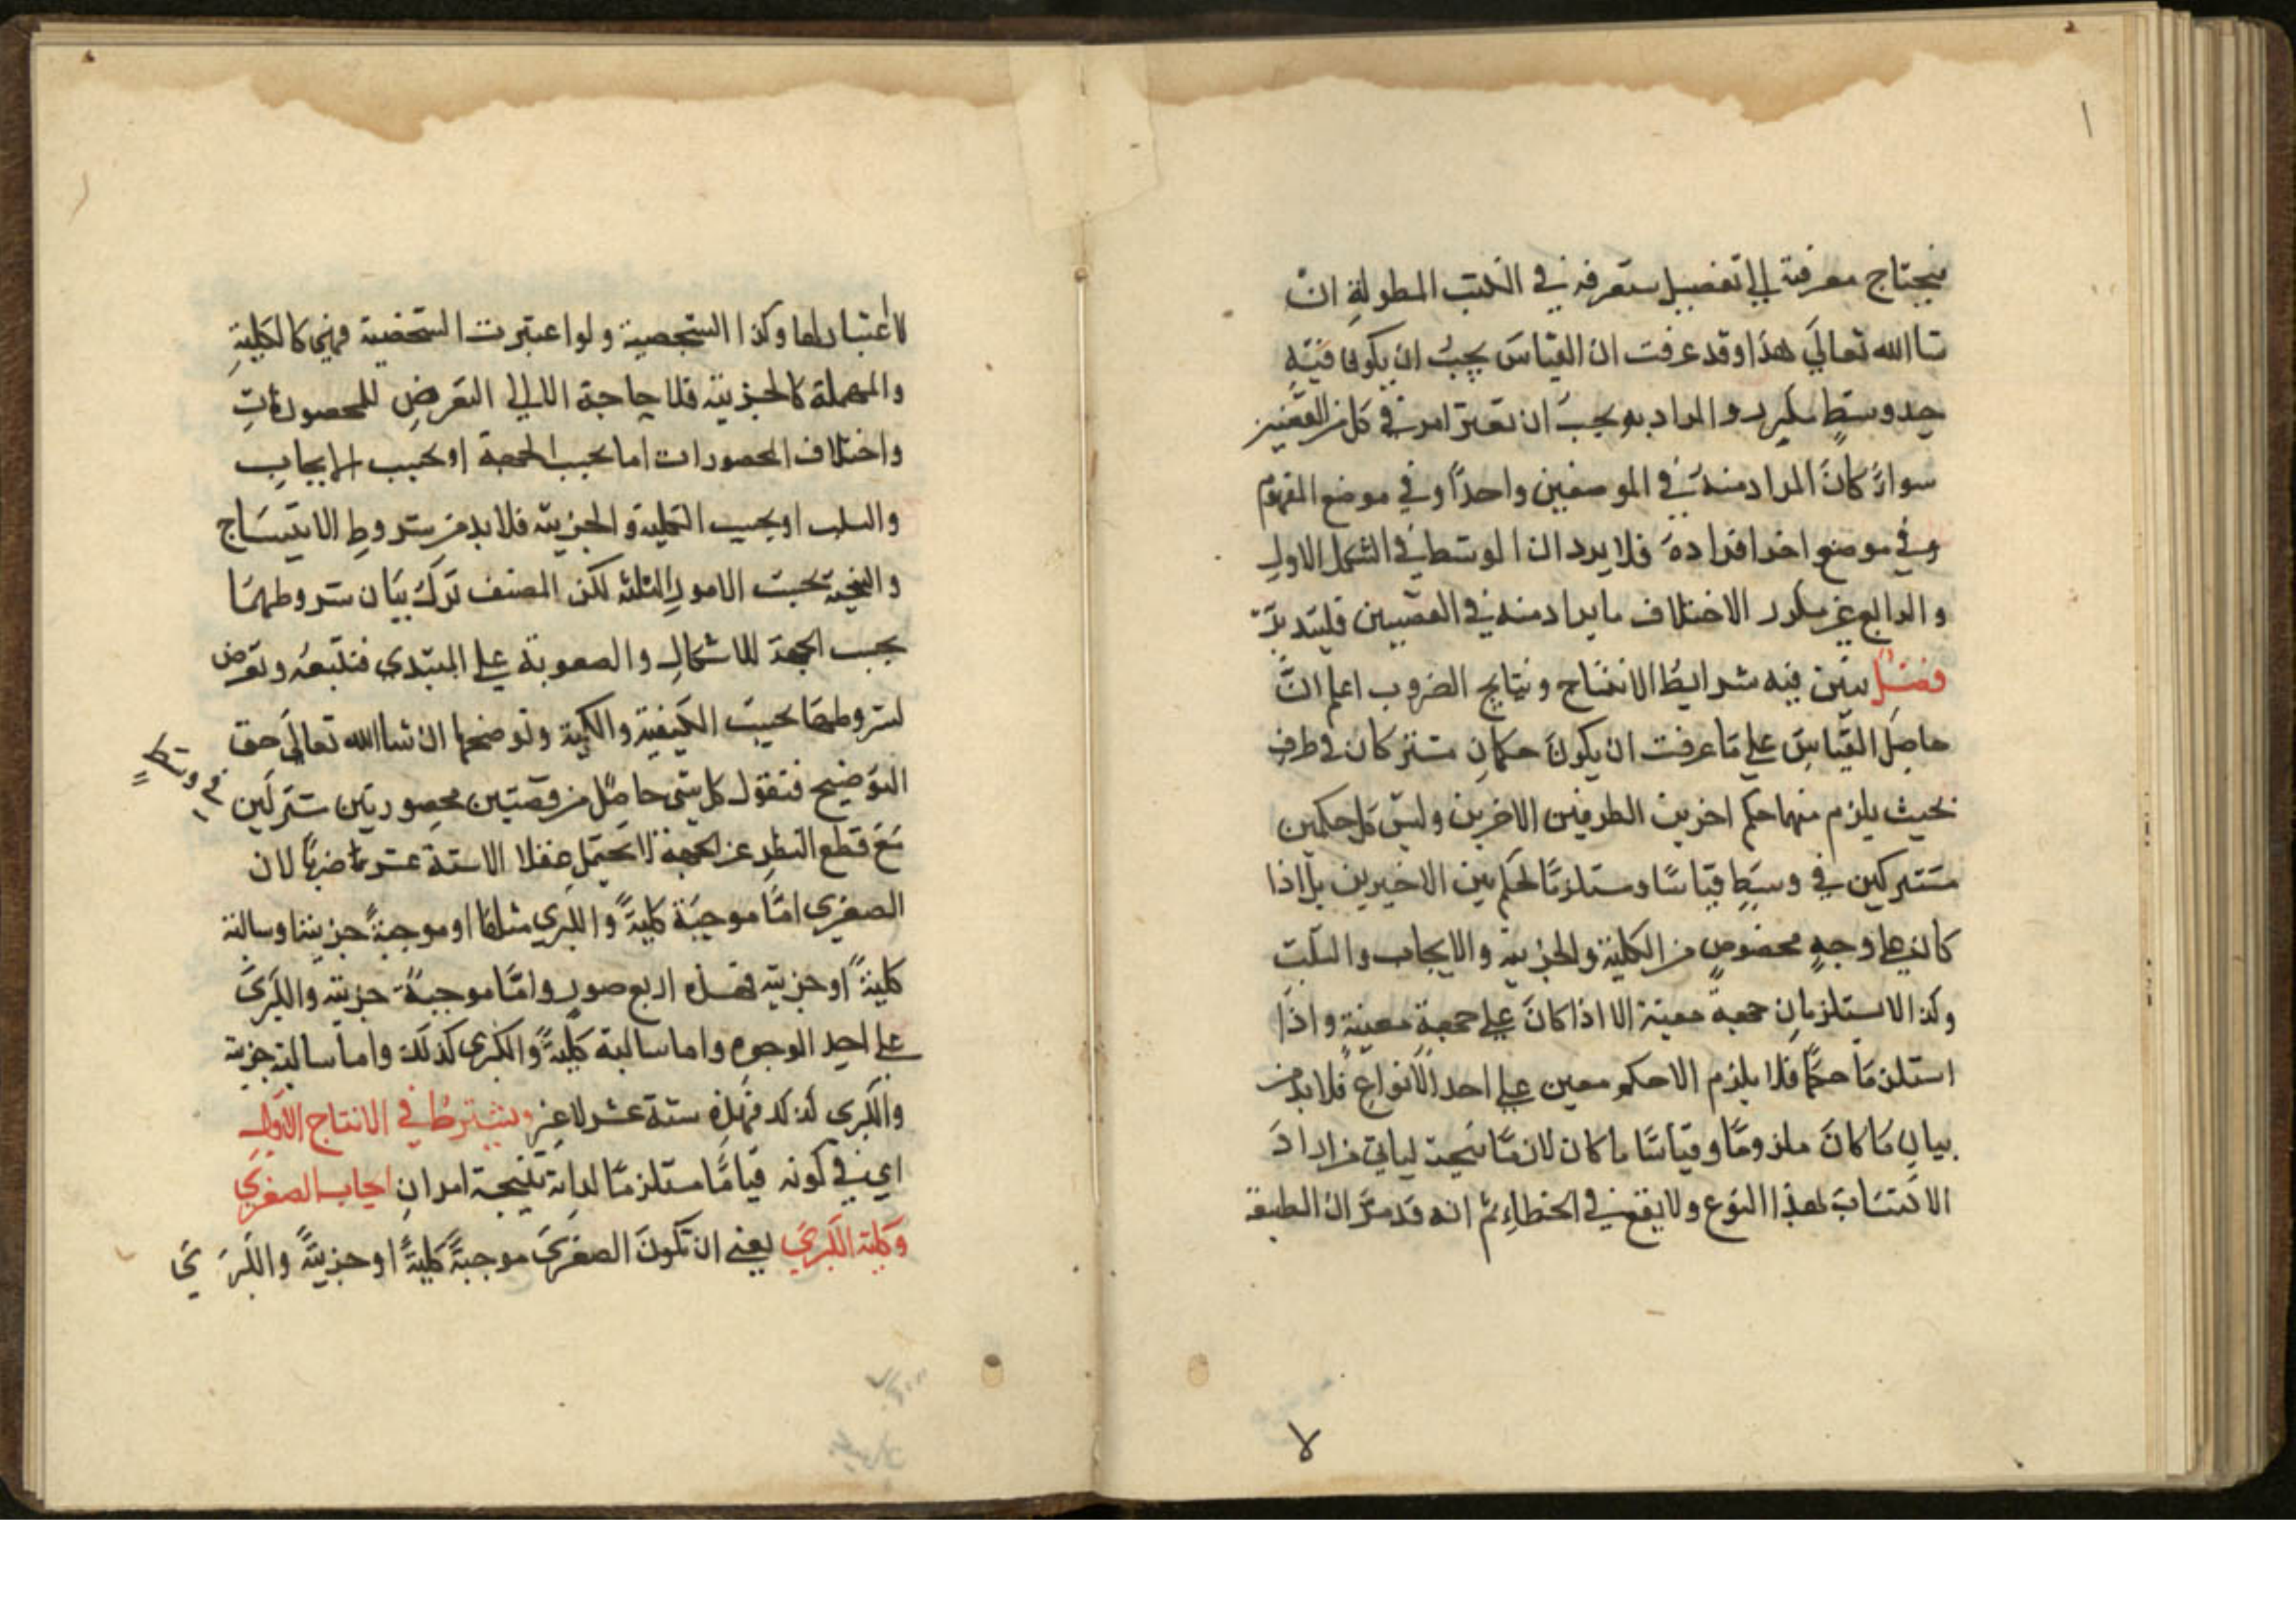 فيحتاج معرفته الي تفصيل ستعرفه في الكتب المطولة ان
شا الله تعالي هذا وقد عرفت ان القياس يجب ان يكون فيه
حد وسط مكرر والمراد به يجب ان تعتبر امر في كل من القضيتين
سواءً كان المراد منه في الموضعين واحدًا وفي موضع المفهوم
وفي موضع اخر افراده فلا يرد ان الوسط في الشكل الاول
والرابع غير مكرر الاختلاف ما يراد منه في القضيتين فليتدبر
فصل نبين فيه شرايط الانتاج ونتايج الضروب اعلم ان
حاصل القياس علي ما عرفت ان يكون حكمان مشتركان في طرف
بحيث يلزم منهما حكم اخر بين الطرفين الاخرين وليس كل حكمين
مشتركين في وسط قياسًا ومستلزمًا لحكم بين الاخيرين بل اذا
كان علي وجه مخصوص من الكلية والجزيية والايجاب والسلب
وكذا لا يستلزمان جهة معينة الا اذا كان علي جهة معينة واذا
استلزما حكمًا فلا يلزم الا حكم معين علي احد الانواع فلا بد من
بيان ما كان ملزومًا وقياسًا ما كان لازمًا نتيجة لياتي من اراد
الاكتساب بهذا النوع ولا يقع في الخطاء ثم انه قد مر ان الطبيعة
لا اعتبار لها وكذا الشخصية ولو اعتبرت الشخصية فهي كالكلية
والمهملة كالجزيية فلا حاجة الا الي التعرض للمحصورات
واختلاف المحصورات اما بحسب الجهة او بحسب الايجاب
والسلب او بحسب الكلية والجزيية فلا بد من شروط الانتساج
والنتيجة بحسب الامور الثلثة لكن المصنف ترك بيان شروطهما
بحسب الجهة للاشكال والصعوبة علي المبتدي فنتبعه ونعرض
لشروطهما بحسب الكيفية والكمية ونوضحها ان شا الله تعالي حق
التوضيح فنقول كل شي حاصل من قضيتين محصورتين مشتركين
في وسط
مع قطع النظر عن الجهة لا يحتمل عقلا الا ستة عشر ضربًا لان
الصغري اما موجبة كلية والكبري مثلها او موجبة جزيية او سالبة
كلية او جزيية فهذه اربع صور واما موجبة جزيية والكبري
علي احد الوجوه واما سالبة كلية والكبري كذلك واما سالبة جزيية
والكبري كذلك فهذه ستة عشر لا غير ويشترط في الانتاج الاول
اي في كونه قياسًا مستلزمًا لذاته نتيجة امران ايجاب الصغري
وكلية الكبري يعني ان تكون الصغري موجبةً كليةً او جزييةً والكبري